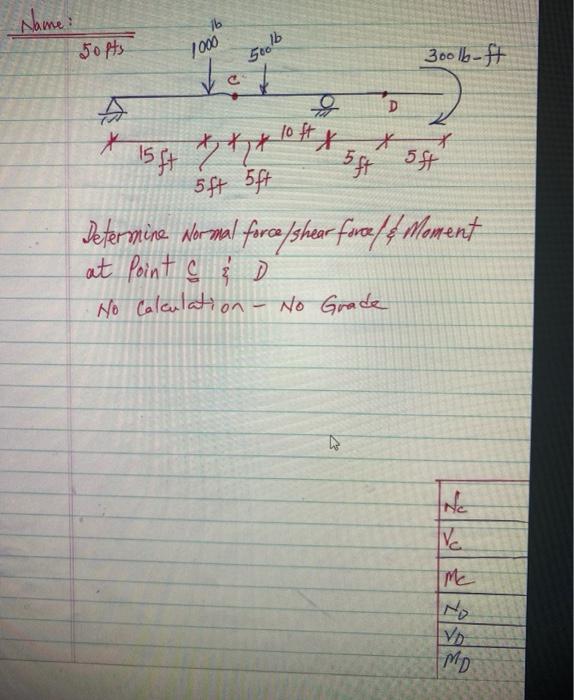 Name:
50 pts
1000 lb
500 lb
300 lb-ft
C
D
15 ft
5ft
5ft
10 ft
5ft
5ft
Determine Normal force/shear force/& Moment
at Point C & D
No Calculation - No Grade
Nc
Vc
Mc
ND
VD
MD